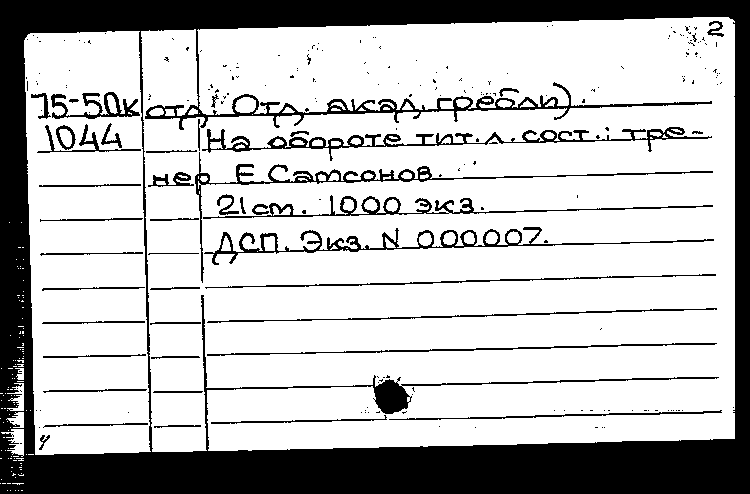 2
75-50к отд. Отд. акад. гребли).
1044 На обороте тит. л. сост.: тре-
нер Е. Самсонов.
21 cm. 1000 экз.
ДСП. Экз. N 000007.